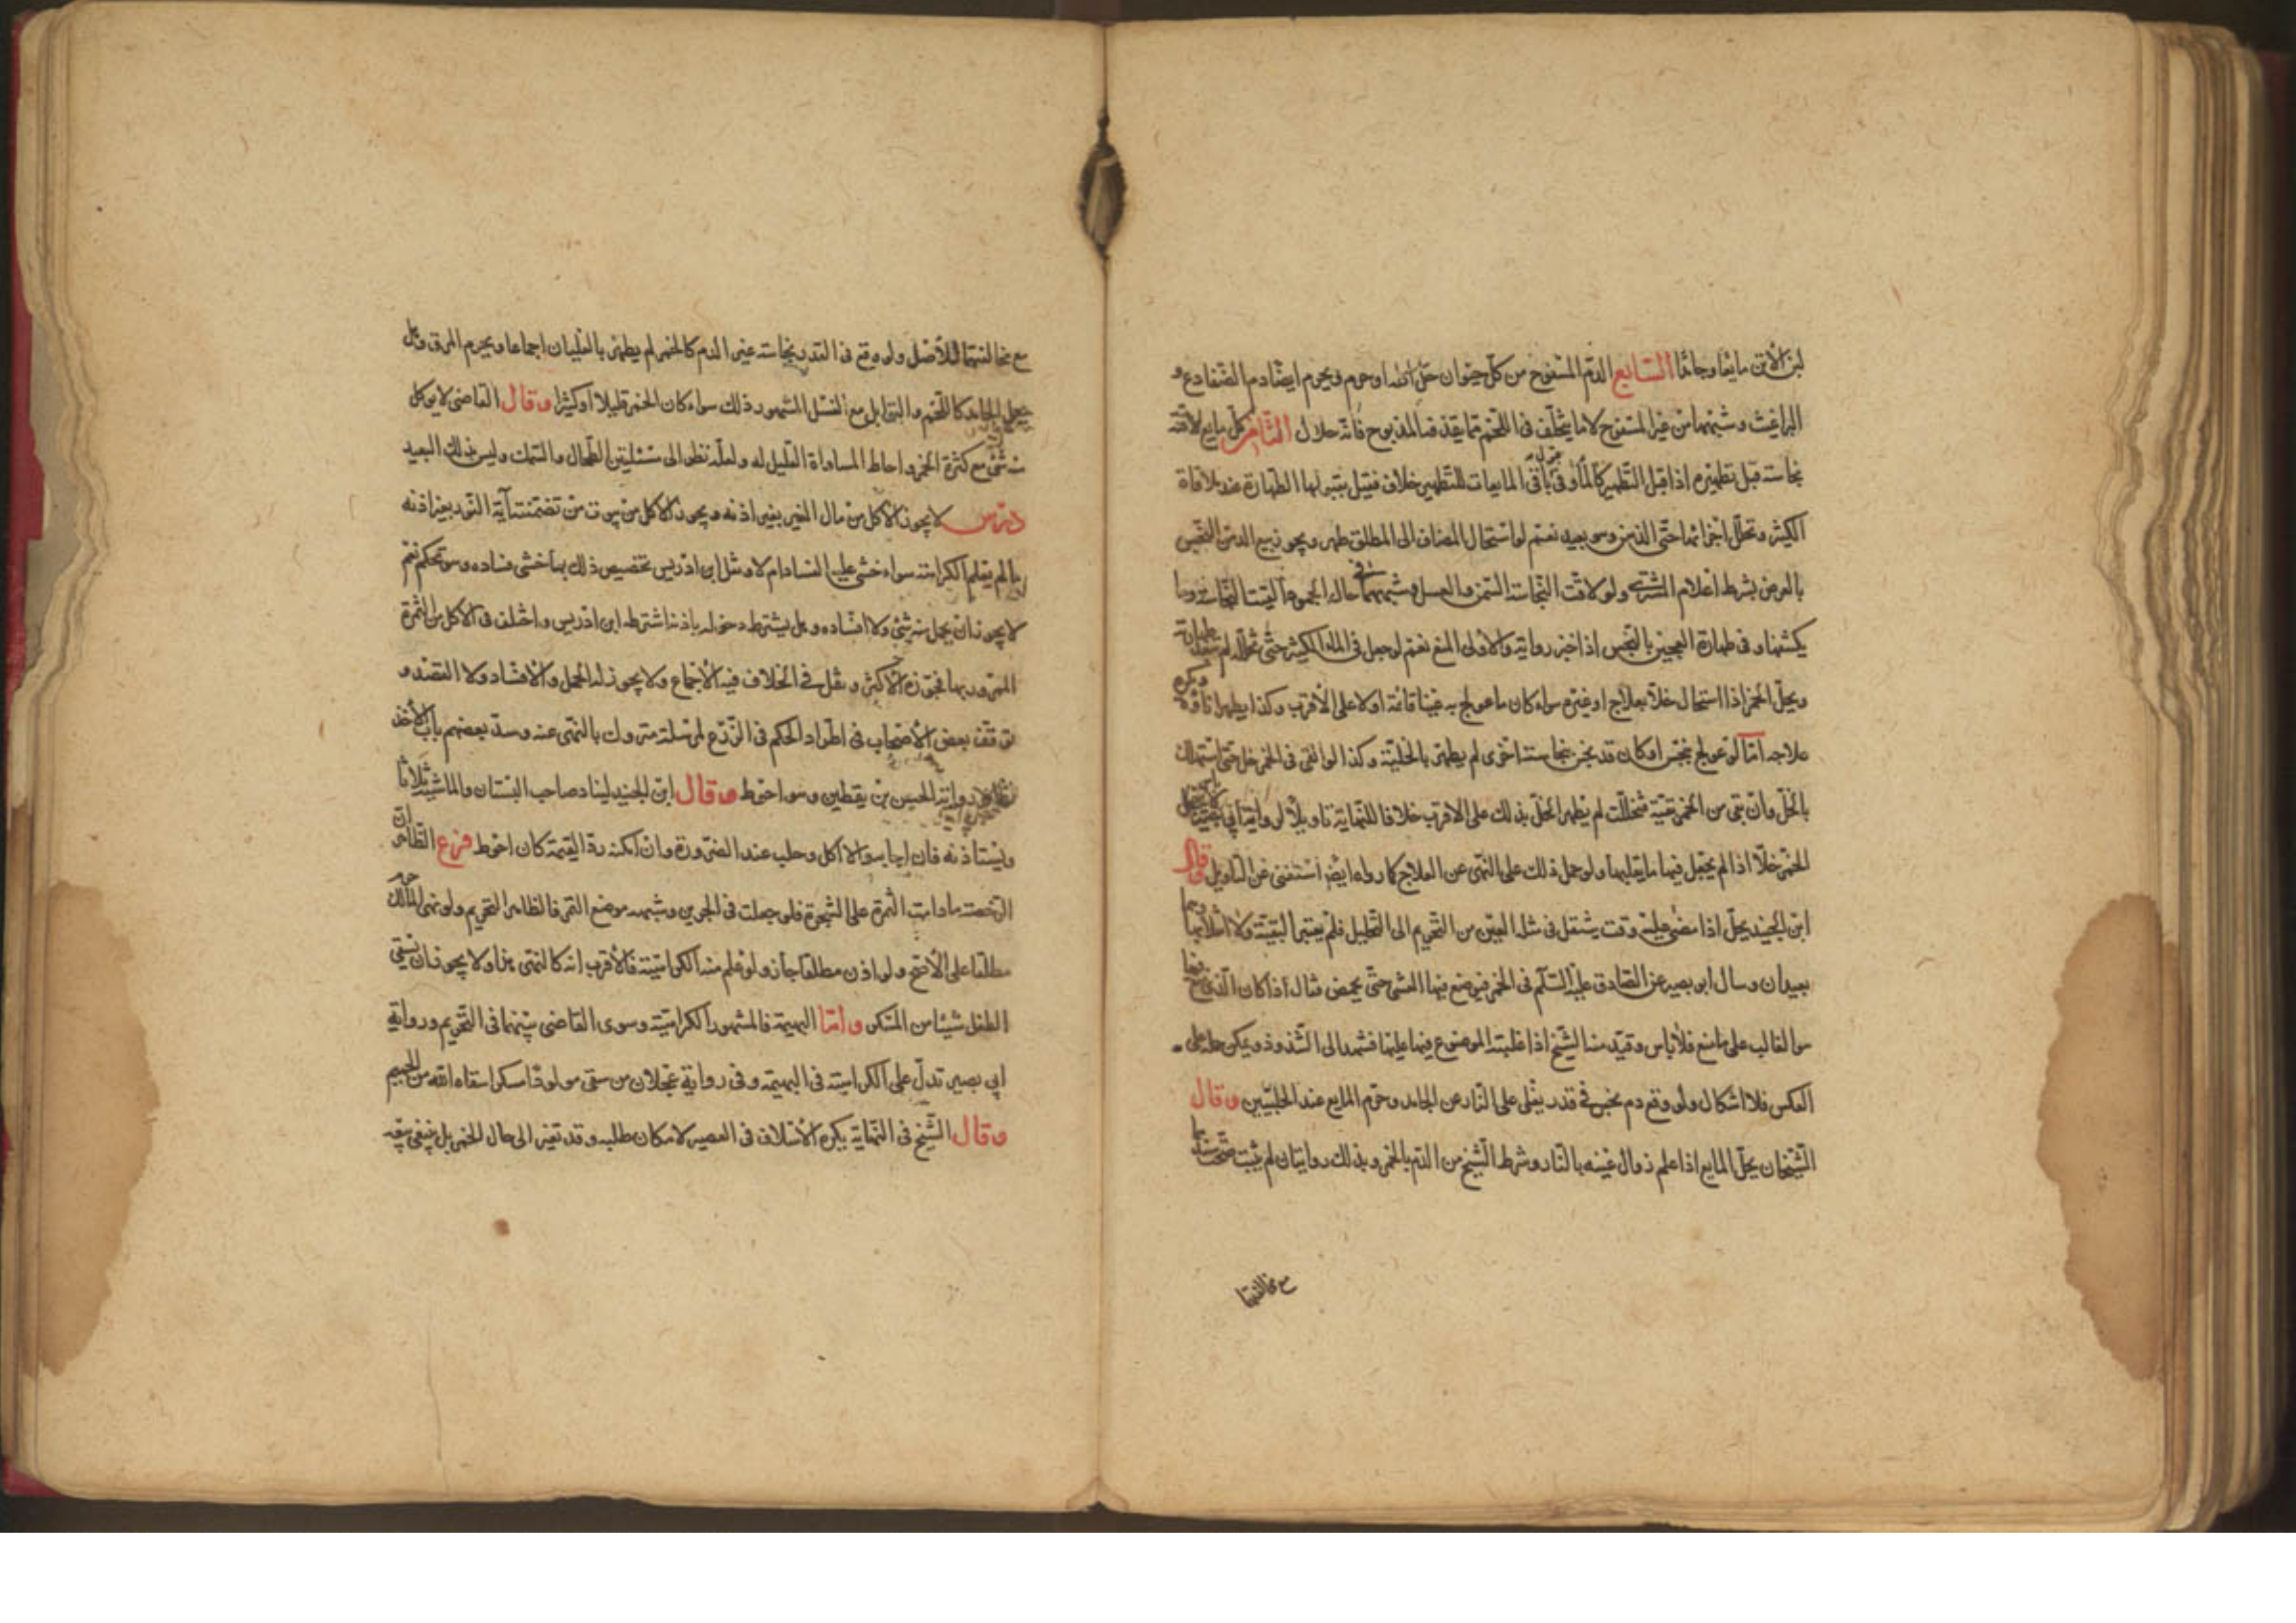 لبن الأتن مايعا وجامدا السابع الدم المسفوح من كل حيوان حل اكله او حرم ويحرم ايضا دم الضفادع و
البراغيث وشبههما من غير المسفوح لا ما يتخلف في اللحم مما يقذفه المذبوح فانه حلال الثامن كل مايع لاقته
نجاسة قبل تطهيره اذا قبل التطهير كالماء وفي باقي المايعات للتطهير خلاف فقيل بقبولها الطهارة عند ملاقاة
الكثير وتخلل اجزائها حتى الدهن وهو بعيد نعم لو استحال المضاف الى المطلق طهر ويجوز بيع الدهن النجس
بالعرض بشرط اعلام المشتري ولو لاقت النجاسة السمن والعسل وشبههما في حال الجمود القيت النجاسة وما
يكتنفها وفي طهارة العجين بالنجس اذا خبز رواية والاولى المنع نعم لو جعل في الماء الكثير حتى تخلله لم تبعد طهارته
ويحل الخمر اذا استحال خلا بعلاج او غيره سواء كان ما عولج به عينا قائمة او لا على الاقرب وكذا يطهر اناؤه ويكره
علاجه اما لو عولج بنجس او كان قد نجس بنجاسة اخرى لم يطهر بالخلية وكذا لو القي في الخمر خل حتى استهلك
بالخل وان بقي من الخمر بقية فتخللت لم يطهر الخل بذلك على الاقرب خلافا للنهاية تاويلا لرواية ابي بصير
الخمر خلا اذا لم يجعل فيها ما يقلبها ولو حمل ذلك على النهي عن العلاج كما رواه ايضا استغنى عن التاويل وقال
ابن الجنيد يحل اذا مضى عليه وقت ينتقل في مثله العين من التحريم الى التحليل فلم يعتبر البقية ولا انقلابها وهما
بعيدان وسال ابو بصير عن الصادق عليه السلام في الخمر فيوضع فيها الشيء حتى يحمض فقال اذا كان الذي صنع فيها
هو الغالب على ما صنع فلا باس وعقيدة منه الشيخ اذا غلبته الموضوع فيها عليها فنسبه الى الشذوذ ويمكن حمله على
العكس فلا اشكال ولو وقع دم نجس في قدر يغلي على النار غسل الجامد وحرم المايع عند الحلبيين وقال
الشيخان يحل المايع اذا علم زوال عينه بالنار وشرط الشيخ من الدم بالخمر وبذلك روايتان لم يثبت صحة سندهما
مع مخالفتهما
مع مخالفتهما للاصل ولو وقع في القدر نجاسة غير الدم كالخمر لم يطهر بالغليان اجماعا ويحرم المرق وهل
يحل الجامد كاللحم والتوابل مع الغسل المشهور ذلك سواء كان الخمر قليلا او كثيرا وقال القاضي لا يؤكل
منه شئ مع كثرة الخمر واحتاط المساواة القليل له ولعله نظر الى مسئلتي الطحال والسمك وليس بذلك البعيد
درس لا يجوز الاكل من مال الغير بغير اذنه ويجوز الاكل من بيوت من تضمنته آية النور بغير اذنه
ما لم يعلم الكراهة سواء خشي عليه الفساد ام لا ونقل ابن ادريس تخصيص ذلك بما خشي فساده وهو تحكم نعم
لا يجوز ان يحمل منه شئ ولا افساده وهل يشترط دخوله باذنه اشترطه ابن ادريس واختلف في الاكل من الثمرة
المرور بها فجوزه الاكثر ونقل في الخلاف فيه الاجماع ولا يجوز له الحمل والافساد ولا القصد و
توقف بعض الاصحاب في اطراد الحكم في الزرع لمرسلة مروك بالنهي عنه وسد بعضهم باب الاخذ
رواية الحسن بن يقطين وهو احوط وقال ابن الجنيد ليناد صاحب البستان والماشية ثلاثا
ويستاذنه فان اجابه والا اكل وحلب عند الضرورة وان امكنه رد القيمة كان احوط فرع الظاهر ان
الرخصة ما دامت الثمرة على الشجرة فلو جعلت في الجرين وشبهه موضع التمر فالظاهر التحريم ولو نهى المالك حرم
مطلقا على الاصح ولو اذن مطلقا جاز ولو علم منه الكراهية فالاقرب انه كالنهي هنا ولا يجوز ان يسقي
الطفل شيئا من المسكر واما البهيمة فالمشهور الكراهية وسوى القاضي بينهما في التحريم ورواية
ابي بصير تدل على الكراهية في البهيمة وفي رواية عجلان من سقى مولودا مسكرا سقاه الله من الحميم
وقال الشيخ في النهاية يكره الاسلاف في العصير لامكان طلبه وقد تغير الى حال الخمر بل ينبغي بيعه